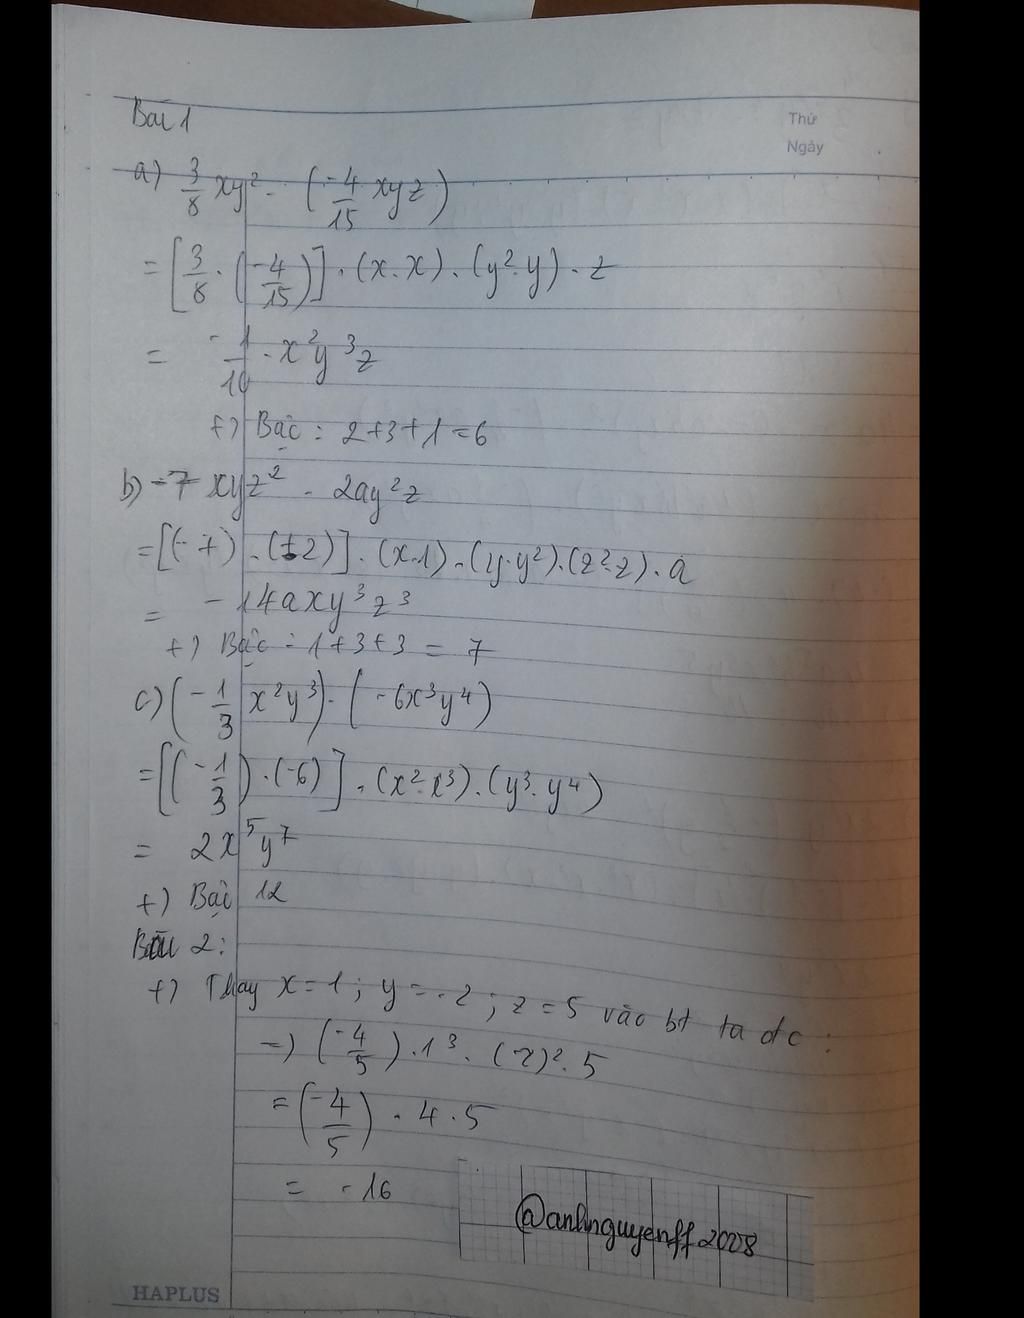 Bài 1
Thứ
Ngày
a) 3/8 xy² . (-4/15 xyz)
= [3/8 . (-4/15)] . (x.x) . (y².y) . z
= -1/10 . x²y³z
+) Bậc : 2+3+1=6
b) -7 xyz² . 2ay²z
= [(-7) . (+2)] . (x.1) . (y.y²).(z².z) . a
= -14axy³z³
+) Bậc : 1+3+3 = 7
c) (-1/3 x²y³) . (-6x³y⁴)
= [(-1/3) . (-6)] . (x².x³) . (y³.y⁴)
= 2x⁵y⁷
+) Bậc 12
Bài 2:
+) Thay x=1 ; y=-2 ; z=5 vào bt ta đc :
=) (-4/5) . 1³ . (-2)² . 5
= (-4/5) . 4 . 5
= -16
@anhnguyenff2008
HAPLUS